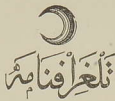 تلغرافنامه